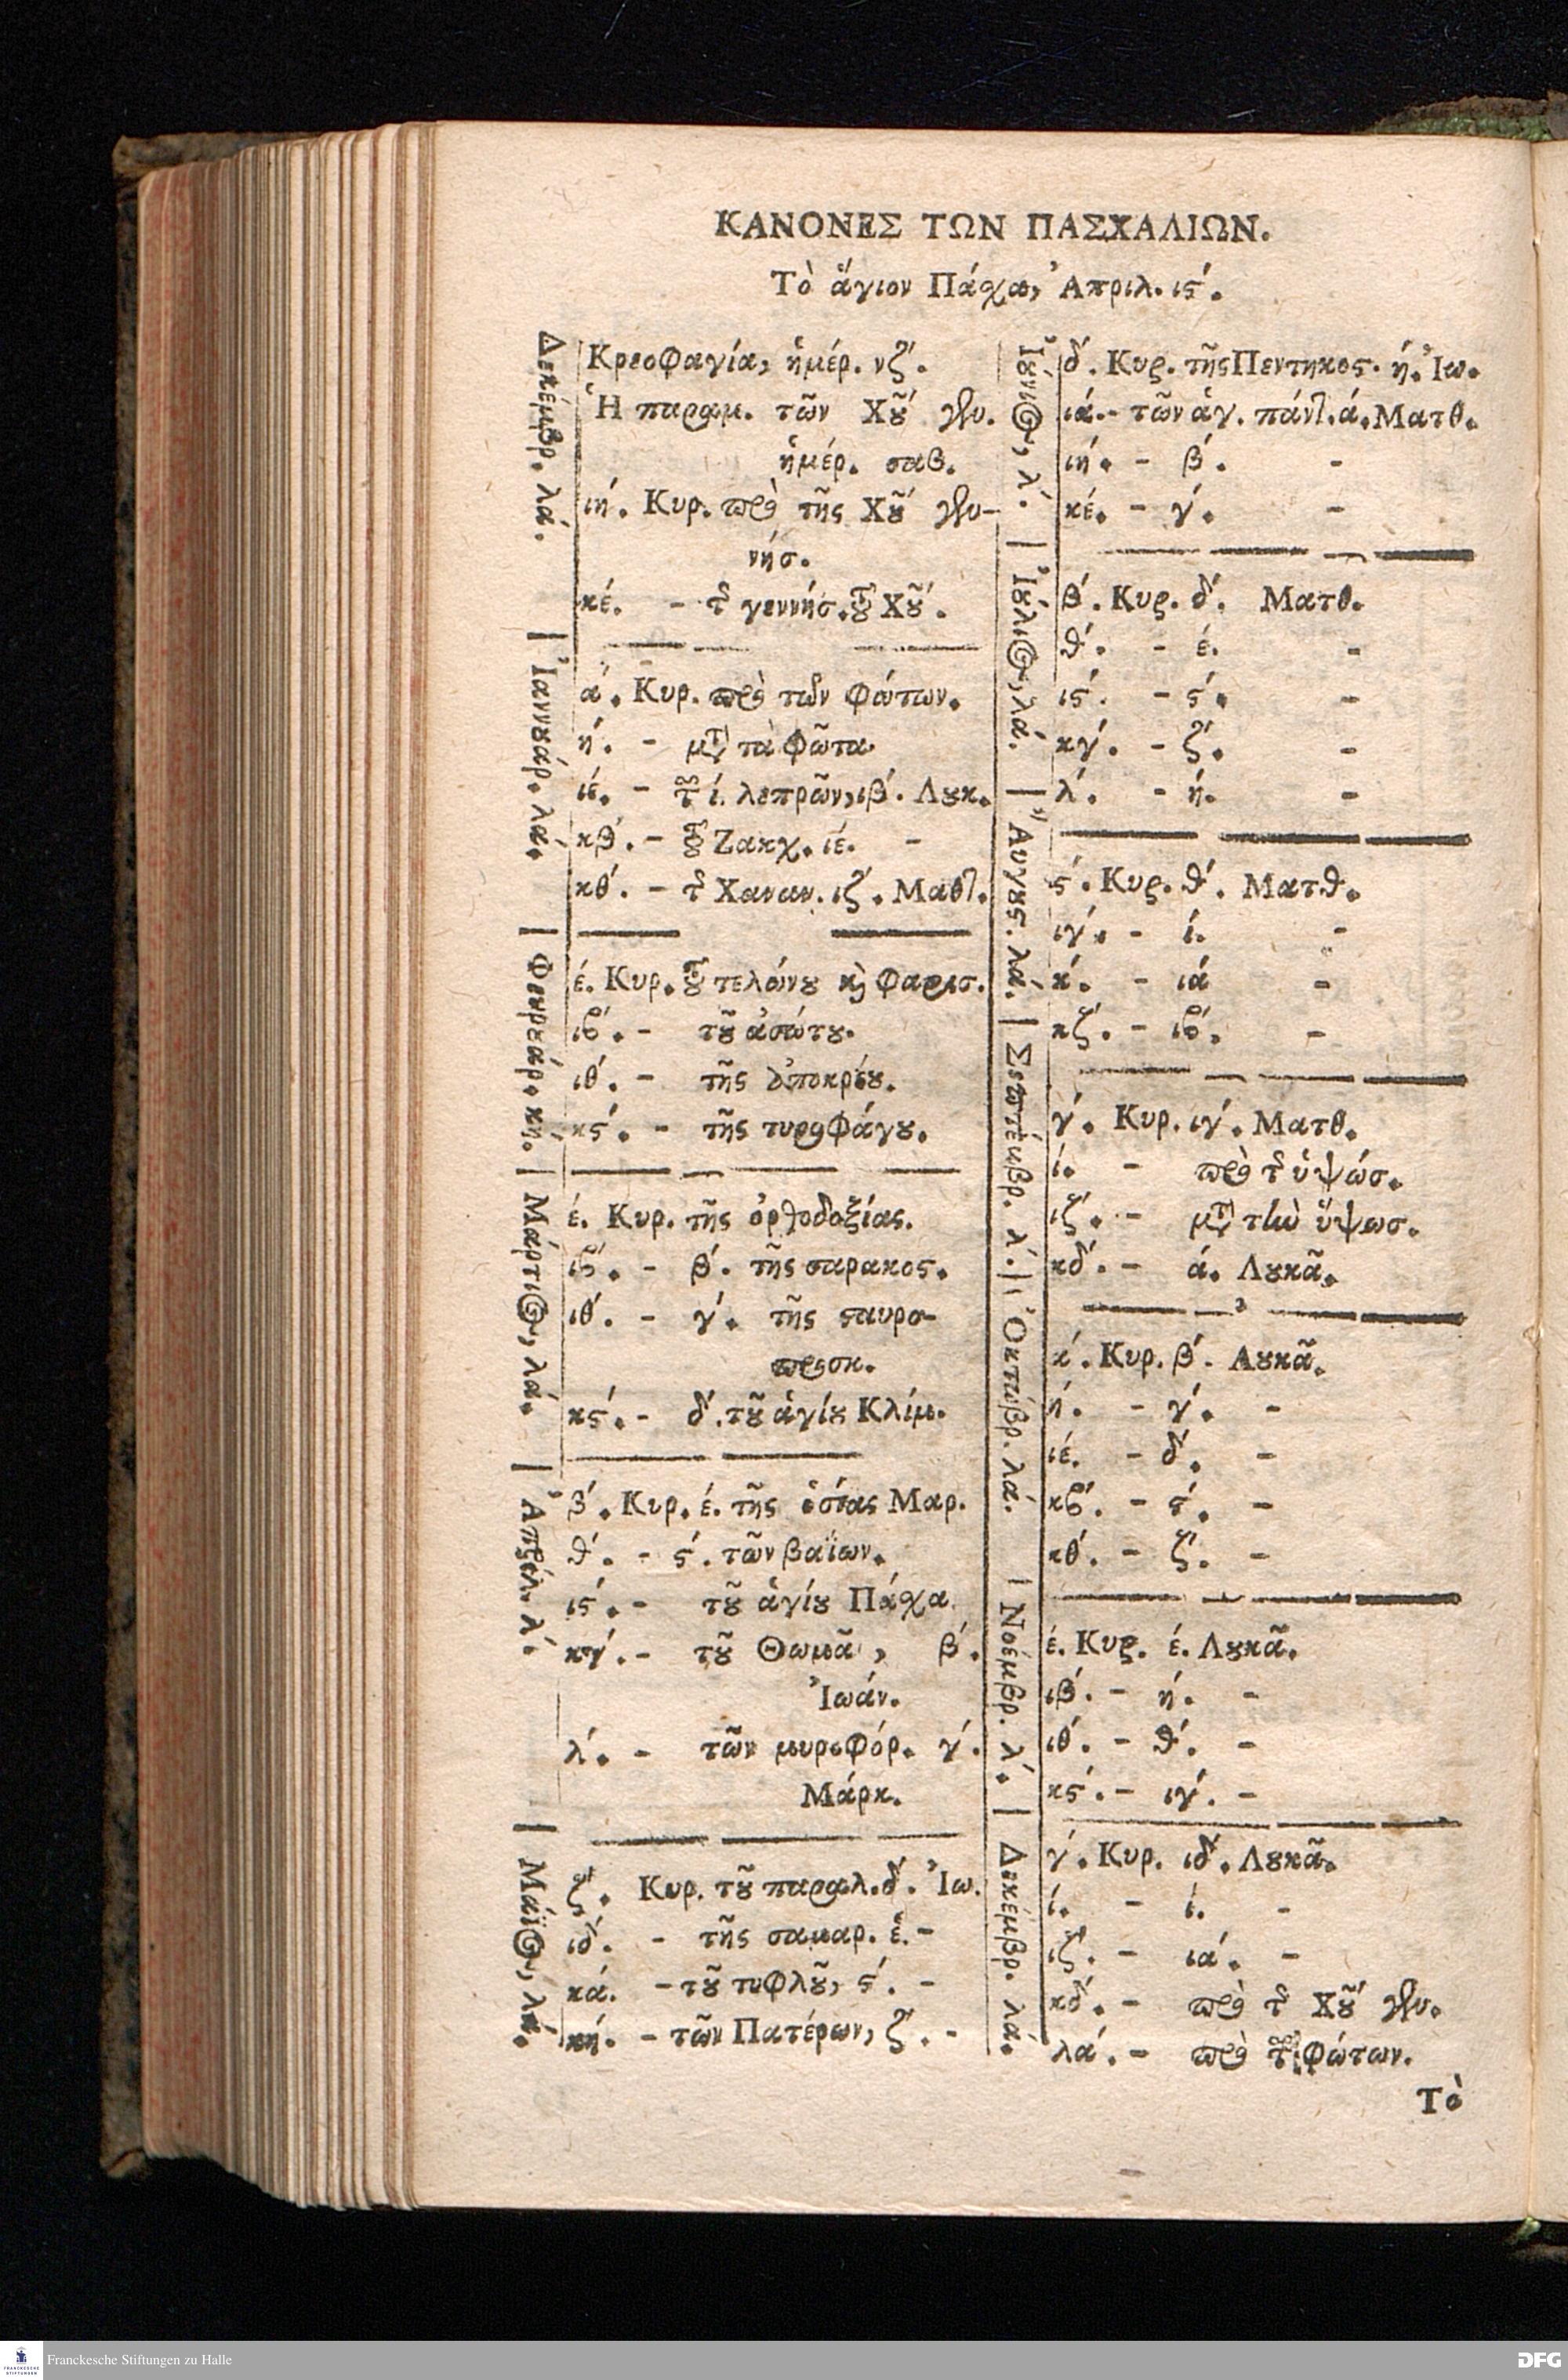 ΚΑΝΟΝΕΣ ΤΩΝ ΠΑΣΧΑΛΙΩΝ.
Τὸ ἅγιον Πάχα, Ἀπριλ. ις΄.
Δεκέμβρ. λά.
Κρεοφαγία, ἡμέρ. νζ΄.
Ἡ παραμ. τῶν Χȣ͂ γεν.
ἡμέρ. σαβ.
ιή. Κυρ. πρὸ τῆς Χȣ͂ γεν-
νήσ.
κέ. - τ͂ γεννήσ. τȣ͂ Χȣ͂.
Ἰαννȣάρ. λά.
ά. Κυρ. πρὸ τῶν Φώτων.
ή. - μτ τὰ Φῶτα
ιέ. - τ͂ ί. λεπρῶν, ιβ΄. Λȣκ.
κθ΄. - τȣ͂ Ζακχ. ιέ. -
κθ΄. - τ͂ Χαναν. ιζ΄. Ματθ.
Φευρȣάρ. κή.
έ. Κυρ. τȣ͂ τελώνȣ κ̀ Φαρισ.
ιβ΄. - τȣ͂ ἀσώτȣ.
ιθ΄. - τῆς ἀποκρέȣ.
κς΄. - τῆς τυροφάγȣ.
Μάρτιος, λά.
έ. Κυρ. τῆς ὀρθοδοξίας.
ιβ΄. - β΄. τῆς σαρακος.
ιθ΄. - γ΄. τῆς ςαυρο-
προσκ.
κς΄. - δ΄. τȣ͂ ἁγίȣ Κλίμ.
Ἀπρίλ. λ΄.
β΄. Κυρ. έ. τῆς ὁσίας Μαρ.
θ΄. - ς΄. τῶν βαΐων.
ις΄. - τȣ͂ ἁγίȣ Πάχα
κγ΄. - τȣ͂ Θωμᾶ, β΄.
Ἰωάν.
λ΄. - τῶν μυροφόρ. γ΄.
Μάρκ.
Μάϊος, λά.
ζ΄. Κυρ. τȣ͂ παραλ. δ΄. Ἰω.
ιδ΄. - τῆς σαμαρ. έ. -
κά. - τȣ͂ τυφλȣ͂, ς΄. -
κή. - τῶν Πατέρων, ζ΄. -
Ἰȣ́νιος, λ΄.
δ΄. Κυρ. τῆς Πεντηκος. ή. Ἰω.
ιά. - τῶν ἁγ. πάντ. ά. Ματθ.
ιή. - β΄. -
κέ. - γ΄. -
Ἰȣ́λιος, λά.
β΄. Κυρ. δ΄. Ματθ.
θ΄. - έ. -
ις΄. - ς΄. -
κγ΄. - ζ΄. -
λ΄. - ή. -
Αὔγȣς. λά.
ς΄. Κυρ. θ΄. Ματθ.
ιγ΄. - ί. -
κ΄. - ιά -
κζ΄. - ιβ΄. -
Σεπτέκβρ. λ΄.
γ΄. Κυρ. ιγ΄. Ματθ.
ί. - πρὸ τ͂ ὑψώσ.
ιζ΄. - μτ τὴν ὕψωσ.
κδ΄. - ά. Λȣκᾶ.
Ὀκτώβρ. λά.
κ΄. Κυρ. β΄. Λȣκᾶ.
ή. - γ΄. -
ιέ. - δ΄. -
κβ΄. - ς΄. -
κθ΄. - ζ΄. -
Νοέμβρ. λ΄.
έ. Κυρ. έ. Λȣκᾶ.
ιβ΄. - ή. -
ιθ΄. - θ΄. -
κς΄. - ιγ΄. -
Δεκέμβρ. λά.
γ΄. Κυρ. ιδ΄. Λȣκᾶ.
ί. - ί. -
ιζ΄. - ιά. -
κδ΄. - πρὸ τ͂ Χȣ͂ γεν.
λά. - πρὸ τ͂ Φώτων.
Τὸ
FRANCKESCHE STIFTUNGEN
Franckesche Stiftungen zu Halle
DFG